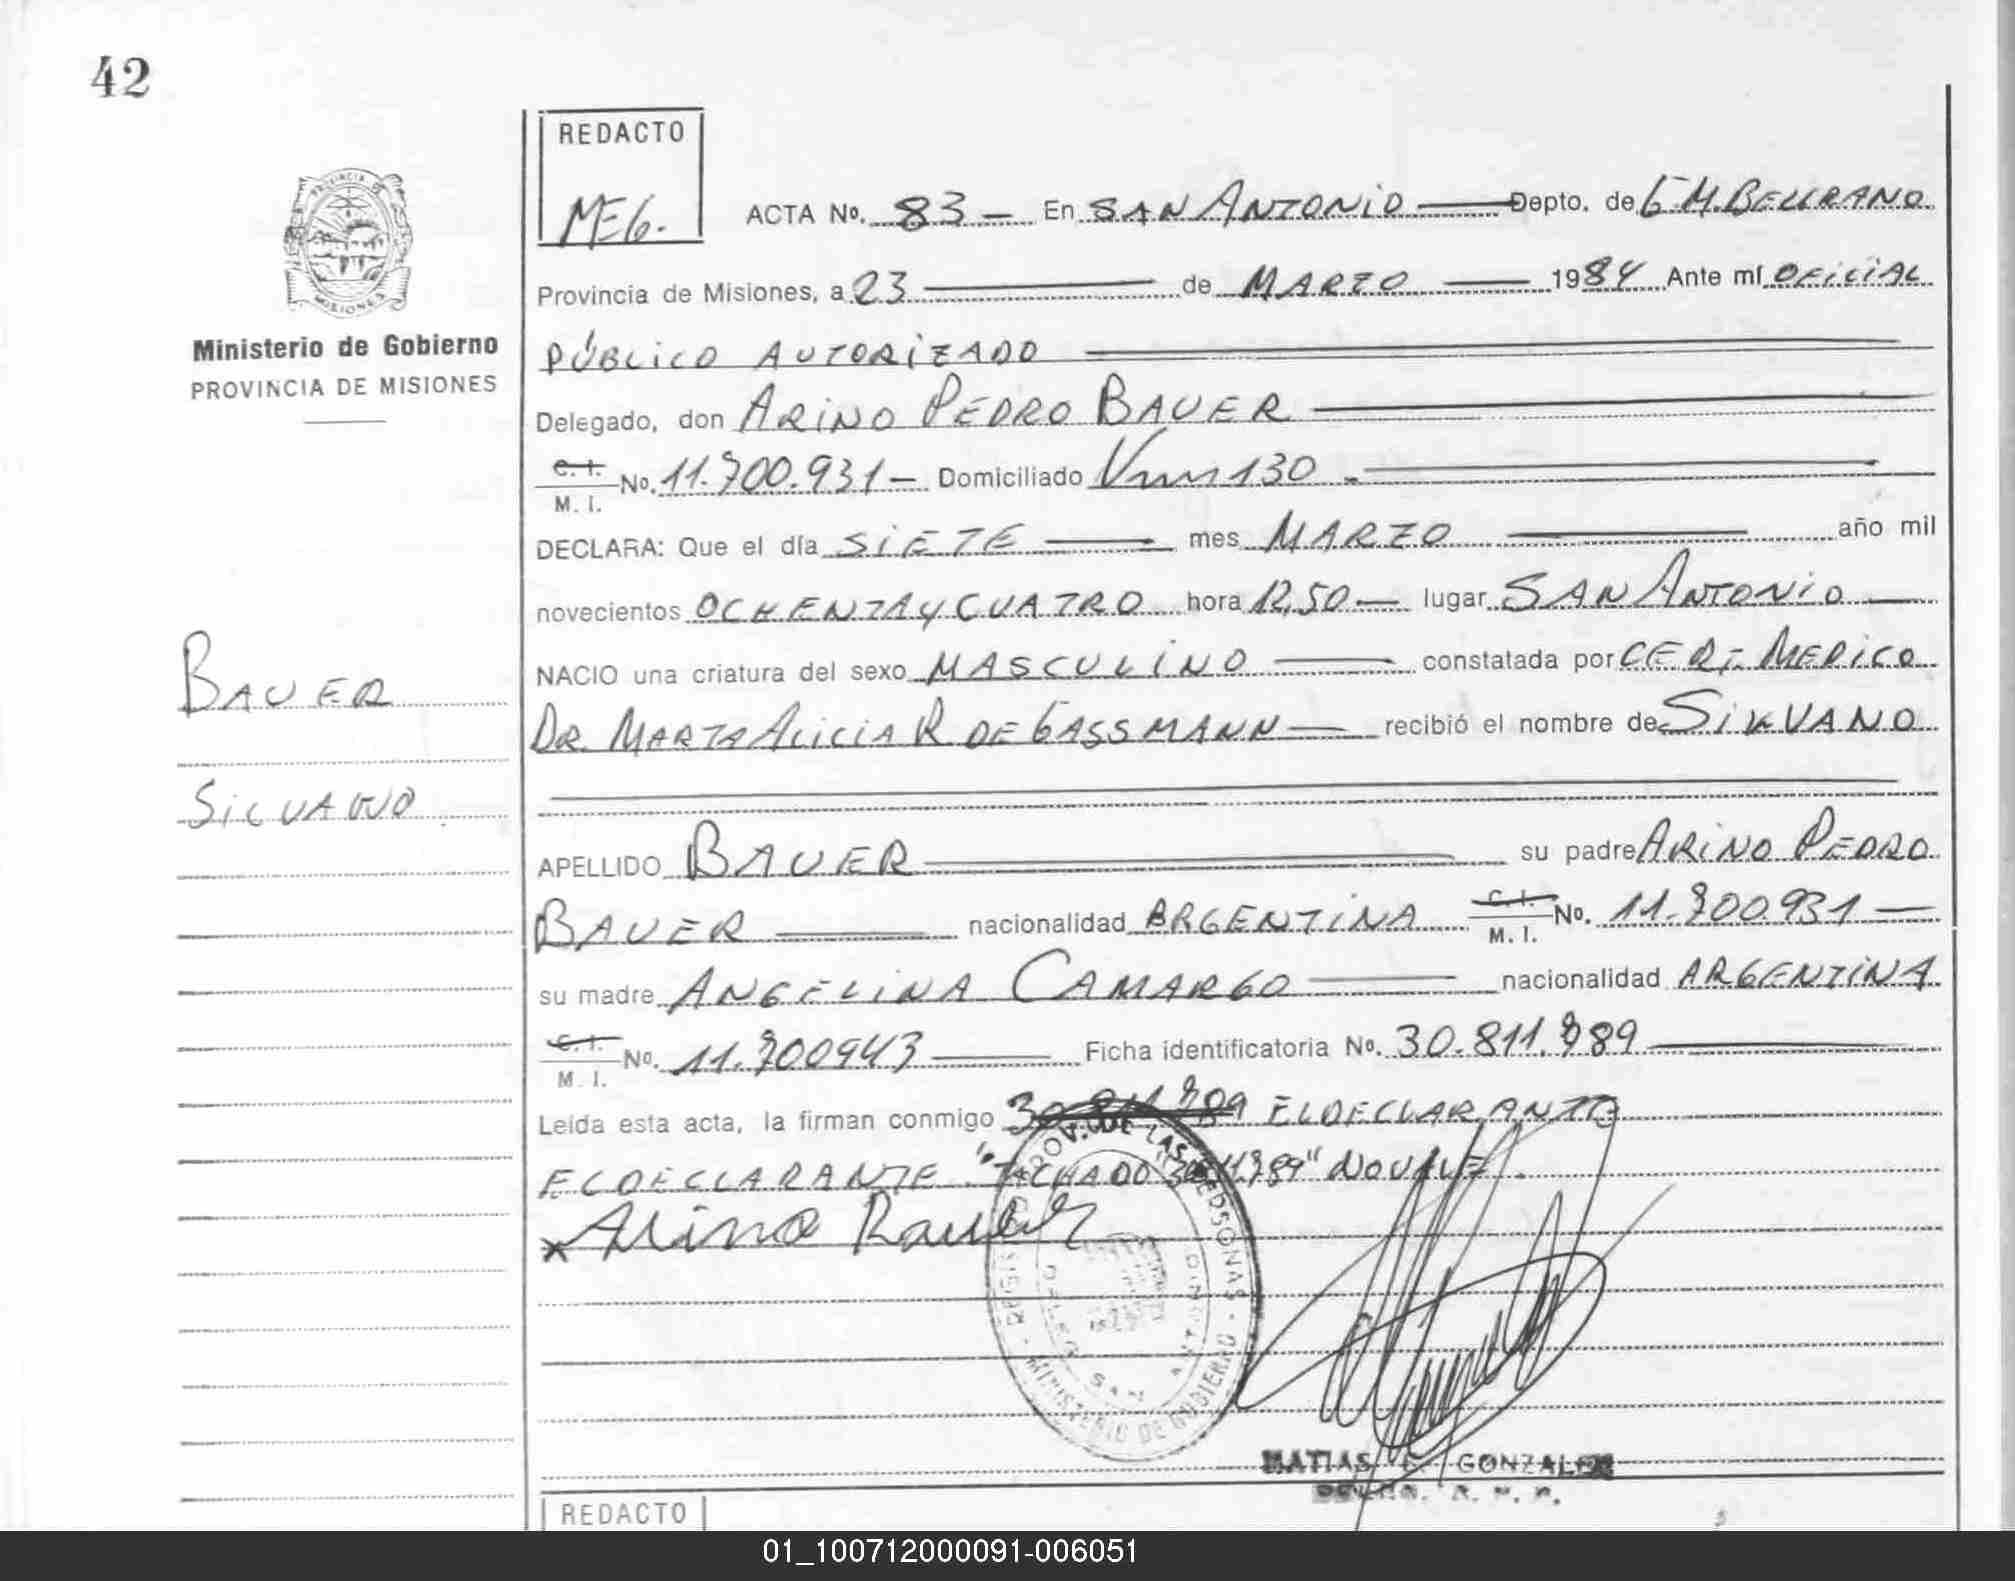 42
REDACTO
MEG.
ACTA No. 83 – En SAN ANTONIO Depto. de G. M. BELGRANO
PROVINCIA DE
MISIONES
Ministerio de Gobierno
PROVINCIA DE MISIONES
Provincia de Misiones, a 23 de MARZO 1984 Ante mí OFICIAL
PÚBLICO AUTORIZADO
Delegado, don ARINO PEDRO BAUER
C. I.
M. I. No. 11.700.931 – Domiciliado 130
DECLARA: Que el día SIETE mes MARZO año mil
novecientos OCHENTA Y CUATRO hora 12,50 – lugar SAN ANTONIO
NACIO una criatura del sexo MASCULINO constatada por CERT. MEDICO
DR. MARTA ALICIA R DE GASSMANN recibió el nombre de SILVANO
BAUER
SILVANO
APELLIDO BAUER su padre ARINO PEDRO
BAUER nacionalidad ARGENTINA C. I. M. I. No. 11.700.931 –
su madre ANGELINA CAMARGO nacionalidad ARGENTINA
C. I.
M. I. No. 11.700943 Ficha identificatoria No. 30.811.789
Leída esta acta, la firman conmigo 30.811.789 EL DECLARANTE
EL DECLARANTE. "TACHADO 30.811.789" NO VALE.
x Arino Bauer
REGISTRO PROV. DE LAS PERSONAS
MINISTERIO DE GOBIERNO
DELEG. SAN ANTONIO
MATIAS GONZALEZ
REDACTO
01_100712000091-006051